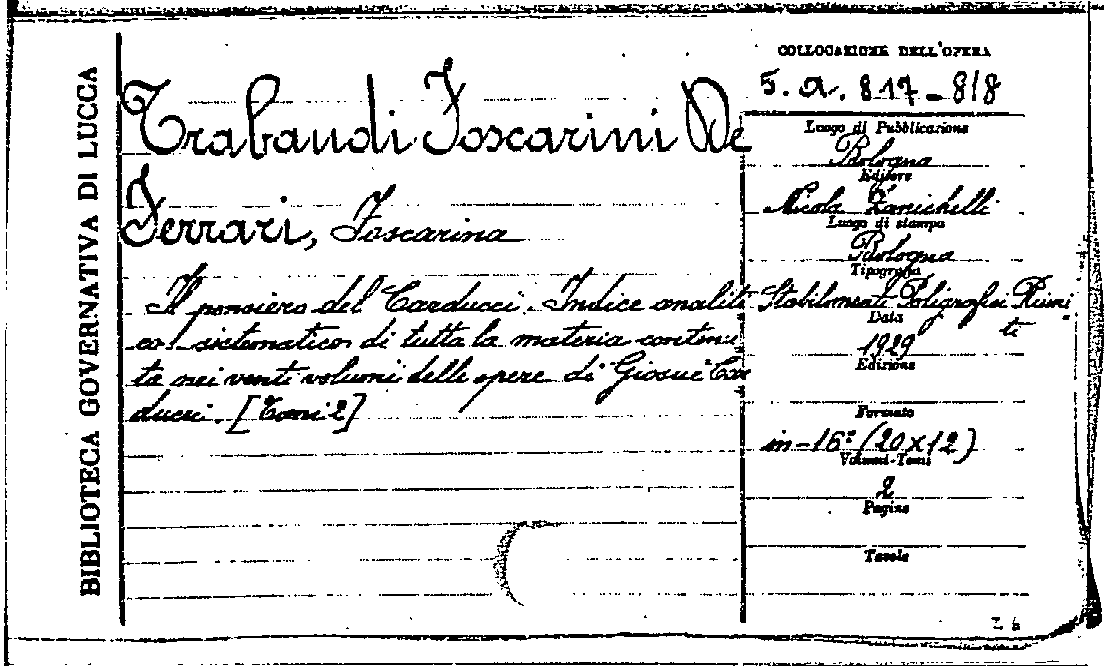 BIBLIOTECA GOVERNATIVA DI LUCCA
Trabaudi Foscarini De
Ferrari, Foscarina
Il pensiero del Carducci. Indice analiti
co-sistematico di tutta la materia contenu
ta nei venti volumi delle opere di Giosuè Car
ducci. [Tomi 2]
COLLOCAZIONE DELL'OPERA
5. a. 817-818
Luogo di Pubblicazione
Bologna
Editore
Nicola Zanichelli
Luogo di stampa
Bologna
Tipografia
Stabilimenti Poligrafici Riuni
ti
Data
1929
Edizione
Formato
in-16° (20x12)
Volumi-Tomi
2
Pagine
Tavole